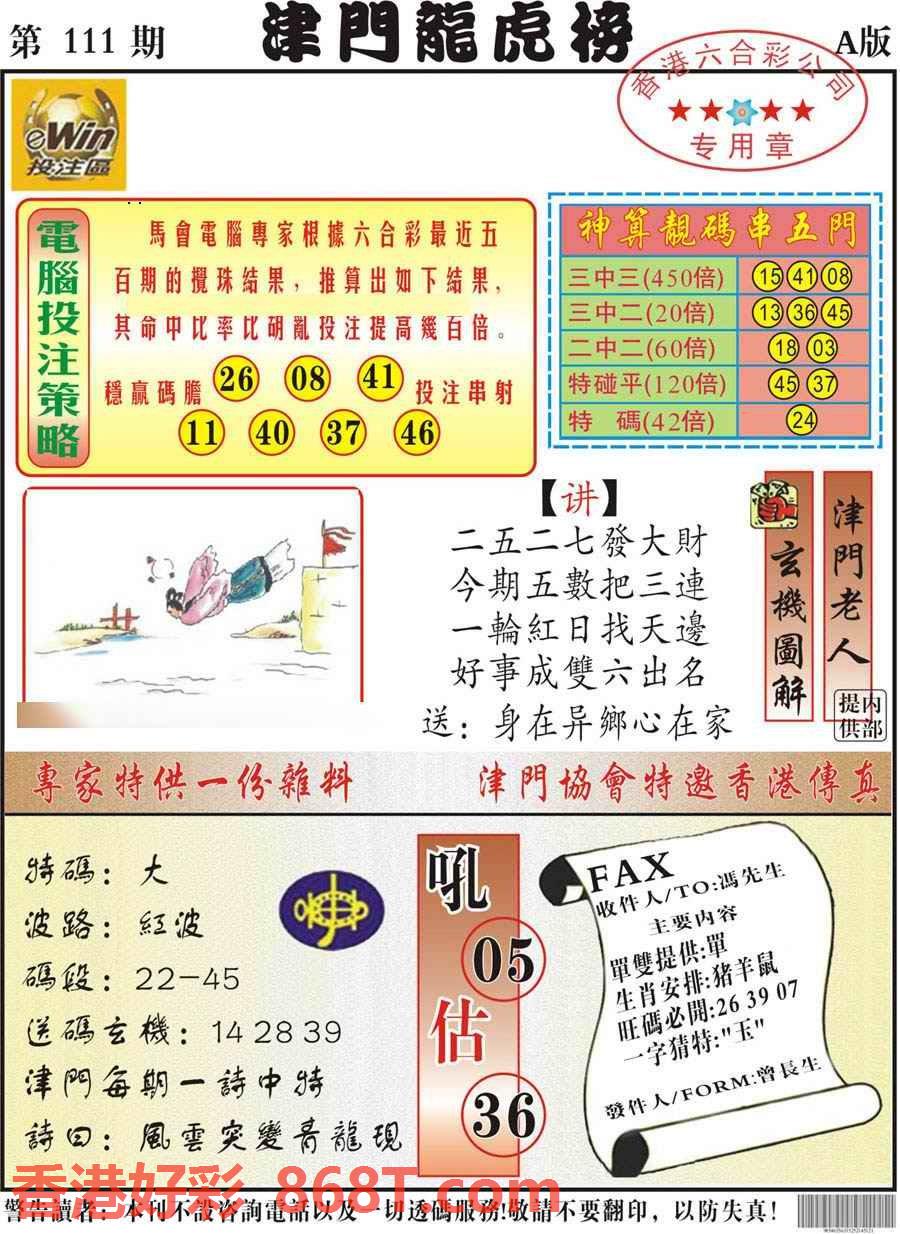 第 111 期
津門龍虎榜
A版
香港六合彩公司
专用章
eWin
投注區
電腦投注策略
馬會電腦專家根據六合彩最近五
百期的攪珠結果，推算出如下結果，
其命中比率比胡亂投注提高幾百倍。
穩贏碼膽 26 08 41 投注串射
11 40 37 46
神算靚碼串五門
三中三(450倍) 15 41 08
三中二(20倍) 13 36 45
二中二(60倍) 18 03
特碰平(120倍) 45 37
特 碼(42倍) 24
【讲】
二五二七發大財
今期五數把三連
一輪紅日找天邊
好事成雙六出名
送：身在异鄉心在家
玄機圖解
津門老人
提内
供部
專家特供一份雜料
津門協會特邀香港傳真
特碼：大
波路：紅波
碼段：22－45
送碼玄機：14 28 39
津門每期一詩中特
詩曰：風雲突變青龍現
吼
05
估
36
FAX
收件人/TO:馮先生
主要内容
單雙提供:單
生肖安排:猪羊鼠
旺碼必開:26 39 07
一字猜特:"玉"
發件人/FORM:曾長生
香港好彩 868T.com
警告讀者：本刊不設咨詢電話以及一切透碼服務!敬請不要翻印，以防失真！